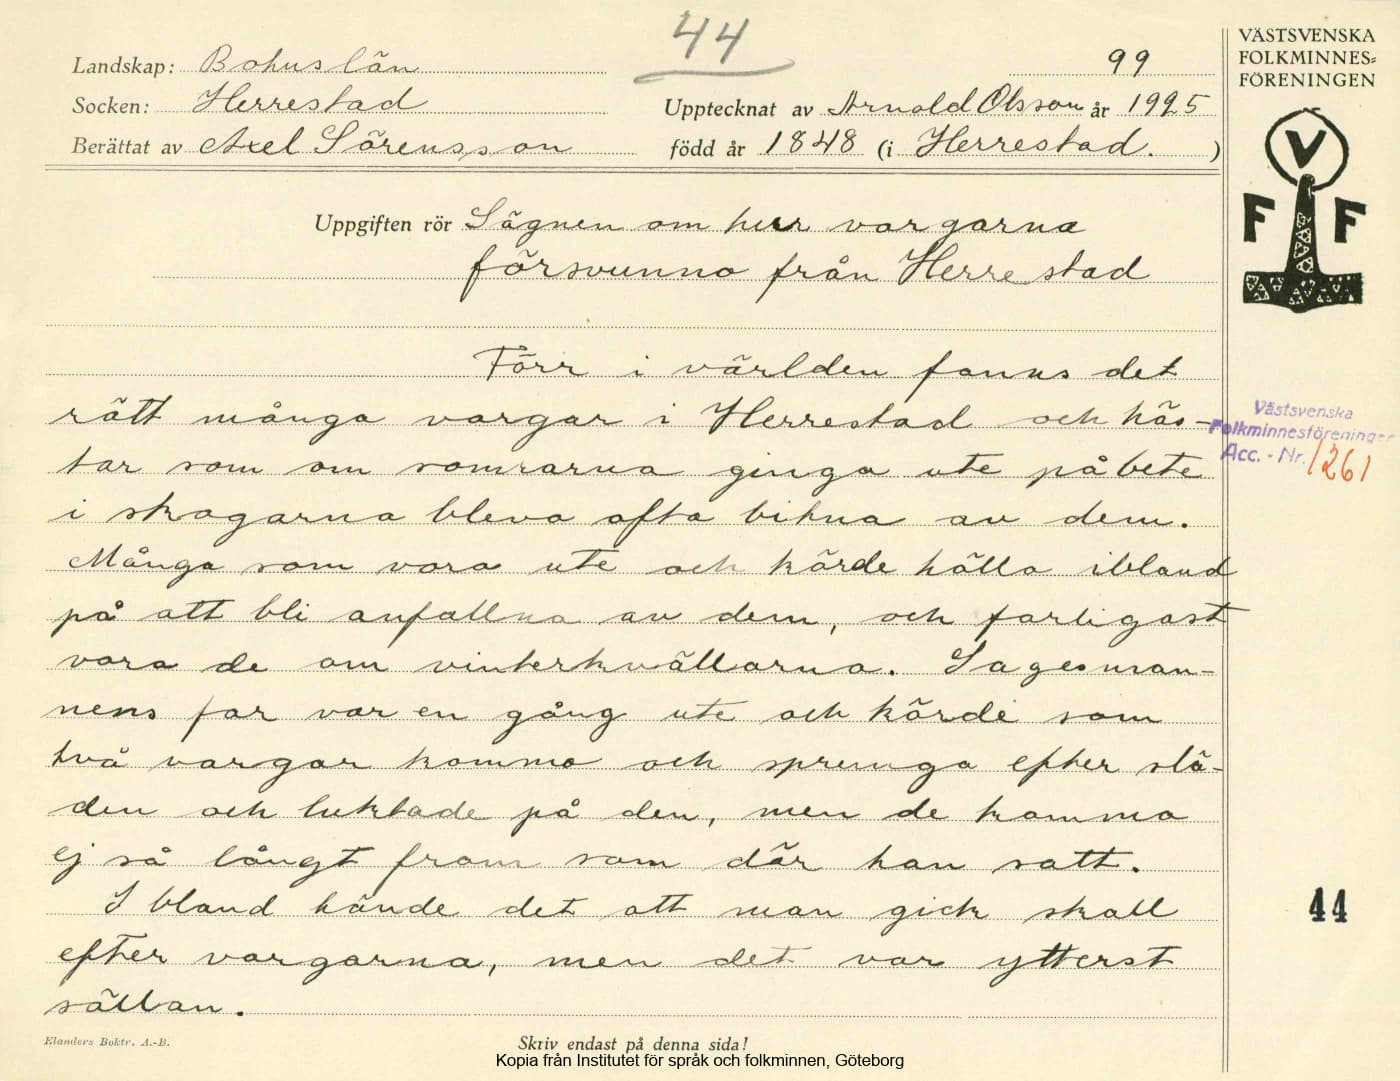 44
99
VÄSTSVENSKA
FOLKMINNES=
FÖRENINGEN
Landskap: Bohuslän
Socken: Herrestad
Upptecknat av Arnold Olsson år 1925
Berättat av Axel Sörensson född år 1848 (i Herrestad. )
V
F F
Uppgiften rör Sägnen om hur vargarna
försvunno från Herrestad
Förr i världen fanns det
rätt många vargar i Herrestad och häs-
tar som om somrarna ginga ute på bete
i skogarna blevo ofta bitna av dem.
Många som voro ute och körde hållo ibland
på att bli anfallna av dem, och farligast
voro de om vinterkvällarna. Sagesman-
nens far var en gång ute och körde som
två vargar kommo och sprungo efter slä-
den och luktade på den, men de kommo
ej så långt fram som där han satt.
Ibland hände det att man gick skall
efter vargarna, men det var ytterst
sällan.
Västsvenska
Folkminnesföreningen
Acc. - Nr. 1261
44
Elanders Boktr. A.-B.
Skriv endast på denna sida!
Kopia från Institutet för språk och folkminnen, Göteborg